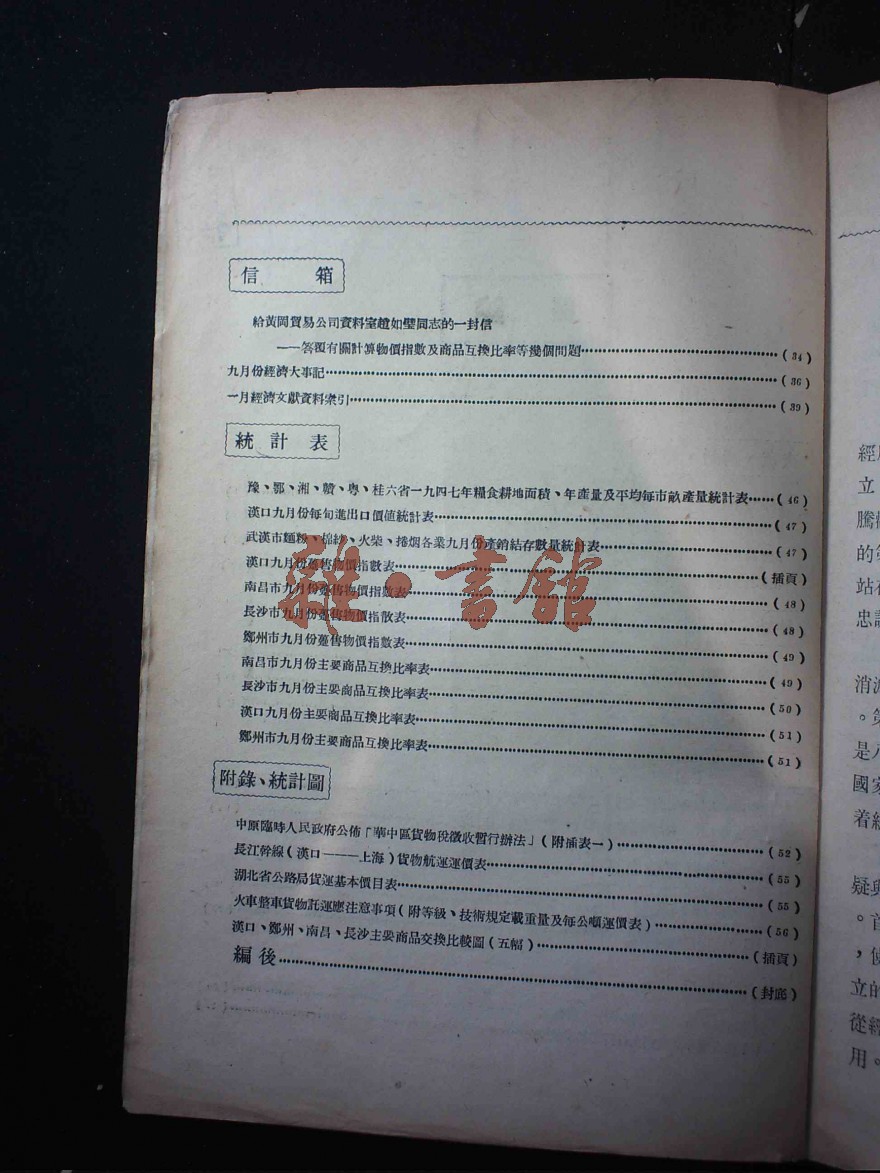 信 箱
給黃岡貿易公司資料室趙如璧同志的一封信
——答覆有關計算物價指數及商品互換比率等幾個問題……(34)
九月份經濟大事記……(36)
一月經濟文獻資料索引……(39)
統 計 表
豫、鄂、湘、贛、粵、桂六省一九四七年糧食耕地面積、年產量及平均每市畝產量統計表……(46)
漢口九月份每旬進出口價值統計表……(47)
武漢市麵粉、棉紗、火柴、捲烟各業九月份產銷結存數量統計表……(47)
漢口九月份躉售物價指數表……(插頁)
南昌市九月份躉售物價指數表……(48)
長沙市九月份躉售物價指数表……(48)
鄭州市九月份躉售物價指數表……(49)
南昌市九月份主要商品互換比率表……(49)
長沙市九月份主要商品互換比率表……(50)
漢口九月份主要商品互換比率表……(51)
鄭州市九月份主要商品互換比率表……(51)
附錄、統計圖
中原臨時人民政府公佈「華中區貨物稅徵收暫行辦法」(附插表一)……(52)
長江幹線(漢口———上海)貨物航運運價表……(55)
湖北省公路局貨運基本價目表……(55)
火車整車貨物託運應注意事項(附等級、技術規定載重量及每公噸運價表)……(56)
漢口、鄭州、南昌、長沙主要商品交換比較圖(五幅)……(插頁)
編後……(封底)
雜·書館
立
騰
的
站
忠
消
。
是
國家
着
疑
。首
,
立的
從經
用。